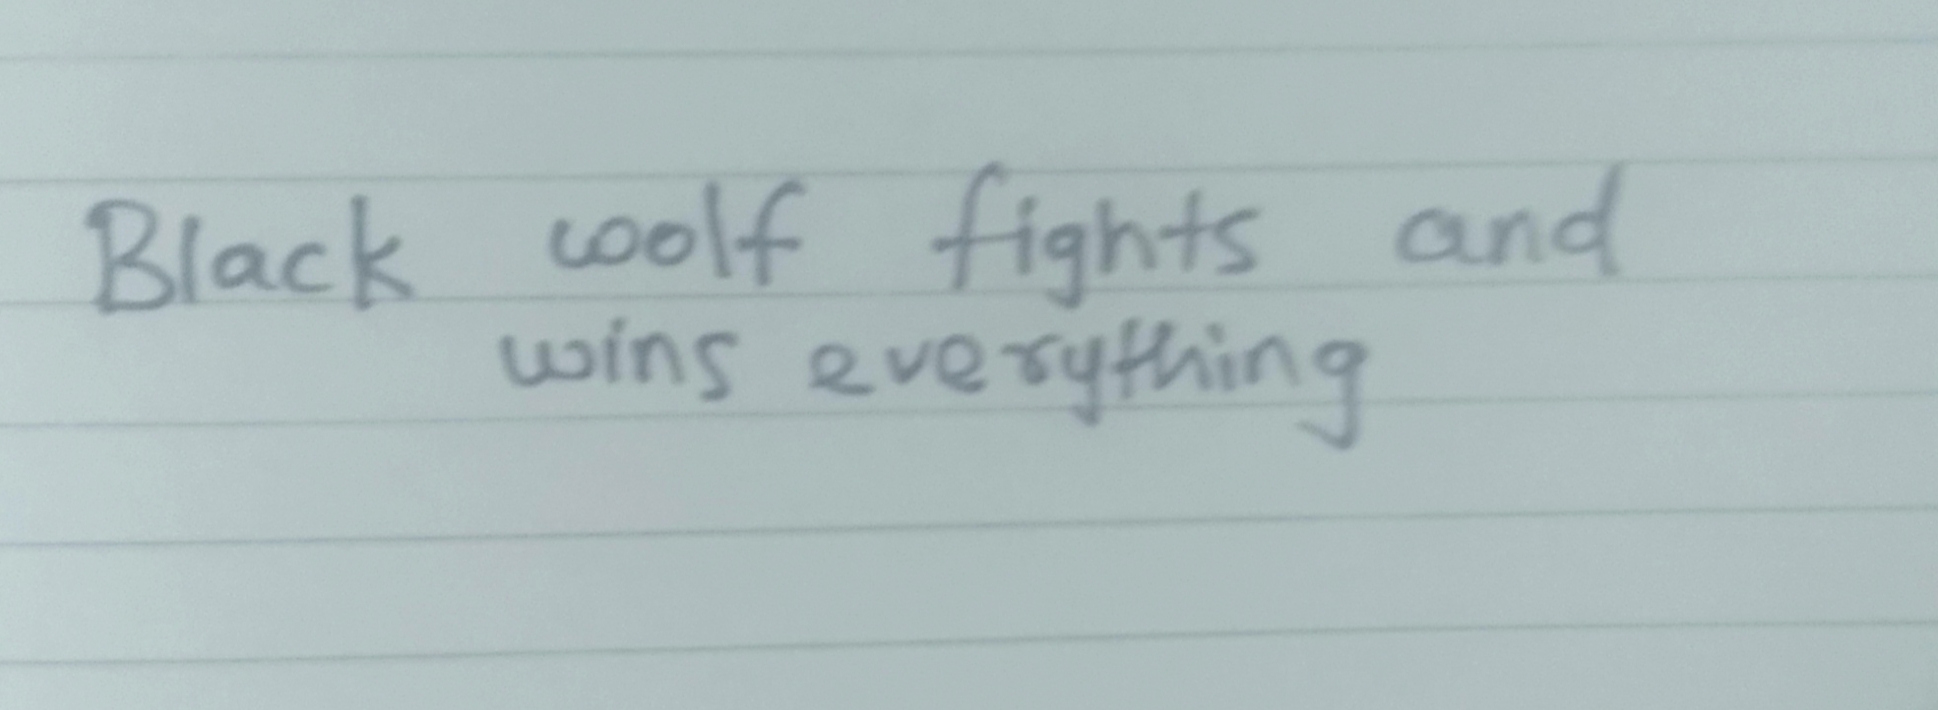 Black woolf fights and
wins everything